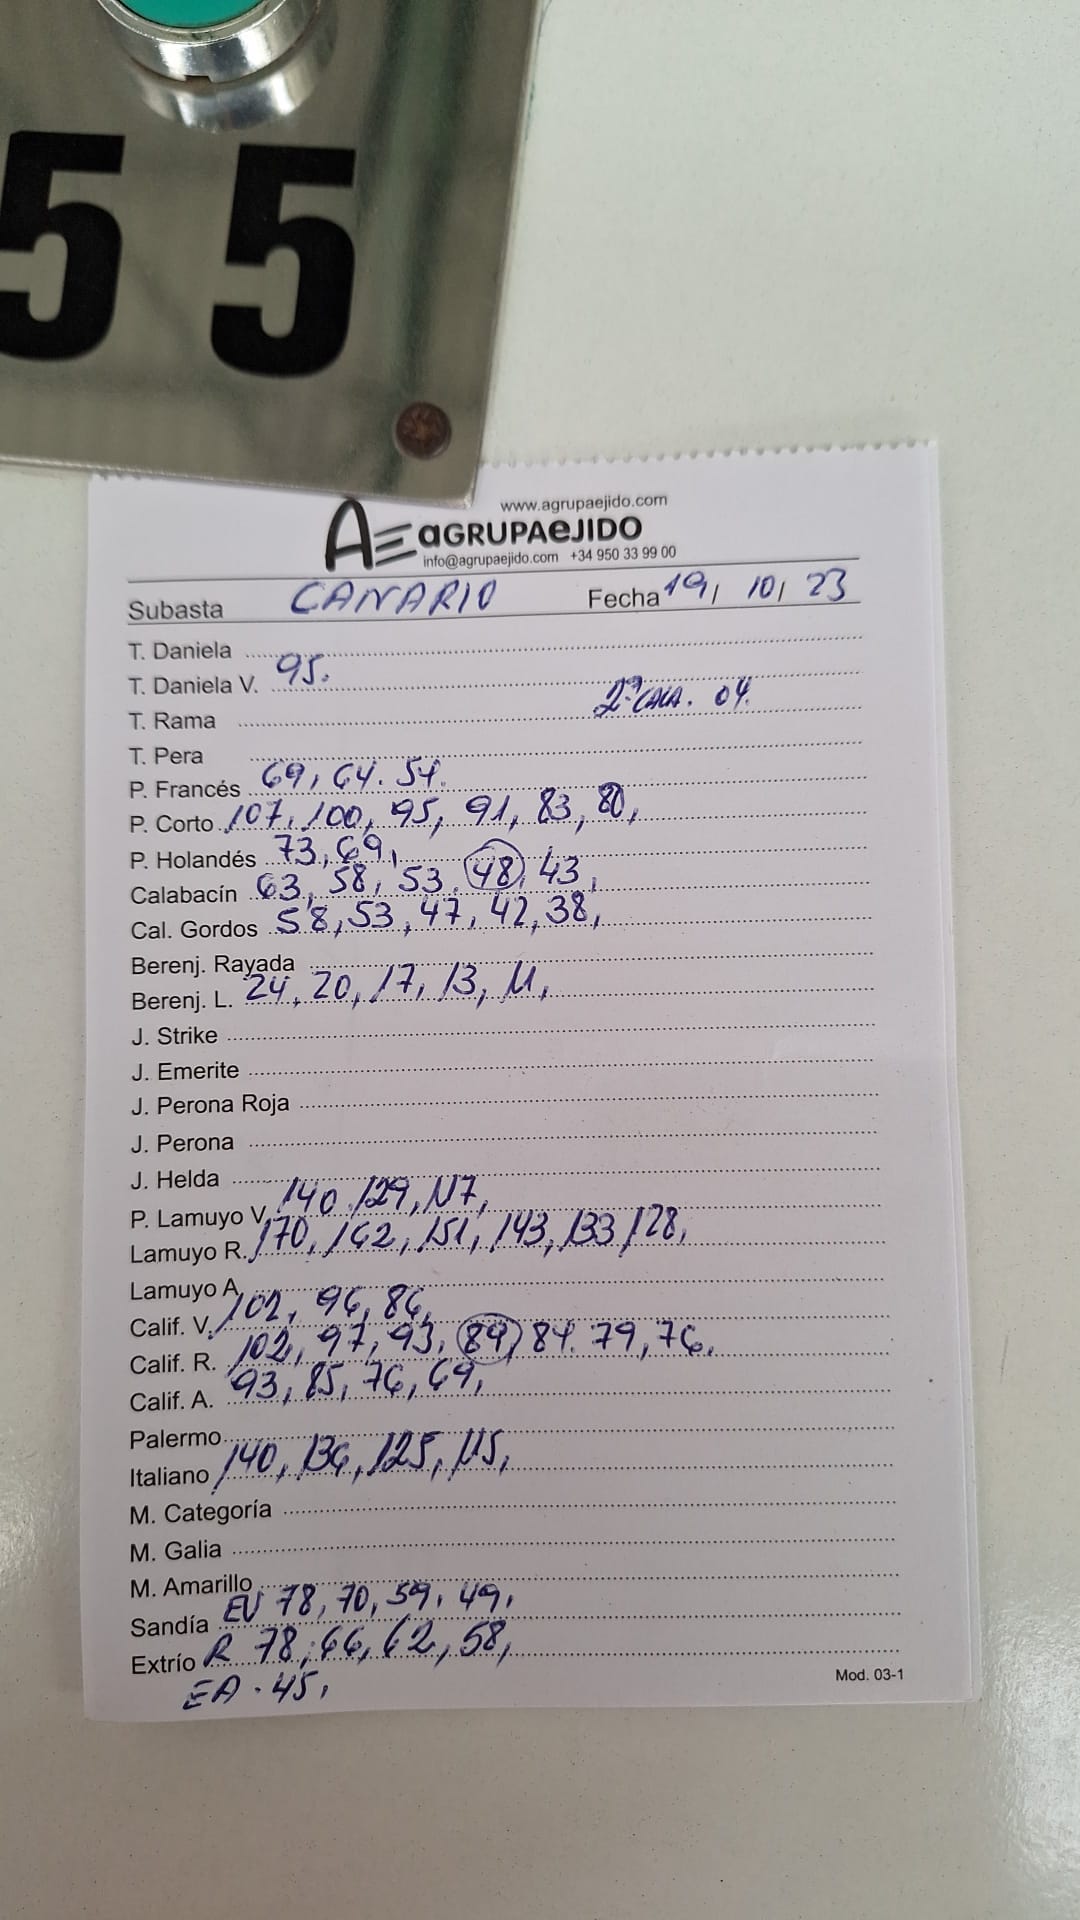 55
www.agrupaejido.com
AE aGRUPAeJIDO
info@agrupaejido.com +34 950 33 99 00
Subasta CANARIO Fecha 19/ 10/ 23
T. Daniela
T. Daniela V. 95.
2ª CALA. 04.
T. Rama
T. Pera
P. Francés 69, 64. 54.
P. Corto 107, 100, 95, 91, 83, 80,
P. Holandés 73, 69,
Calabacín 63, 58, 53, 48, 43,
Cal. Gordos 58, 53, 47, 42, 38,
Berenj. Rayada
Berenj. L. 24, 20, 17, 13, 11,
J. Strike
J. Emerite
J. Perona Roja
J. Perona
J. Helda
P. Lamuyo V. 140, 129, 117,
Lamuyo R. 170, 162, 151, 143, 133, 128,
Lamuyo A.
Calif. V. 102, 96, 86,
Calif. R. 102, 97, 93, 89, 84. 79, 76,
Calif. A. 93, 85, 76, 69,
Palermo
Italiano 140, 136, 125, 115,
M. Categoría
M. Galia
M. Amarillo
Sandía EV 78, 70, 59, 49,
Extrío R 78, 66, 62, 58,
EA. 45,
Mod. 03-1